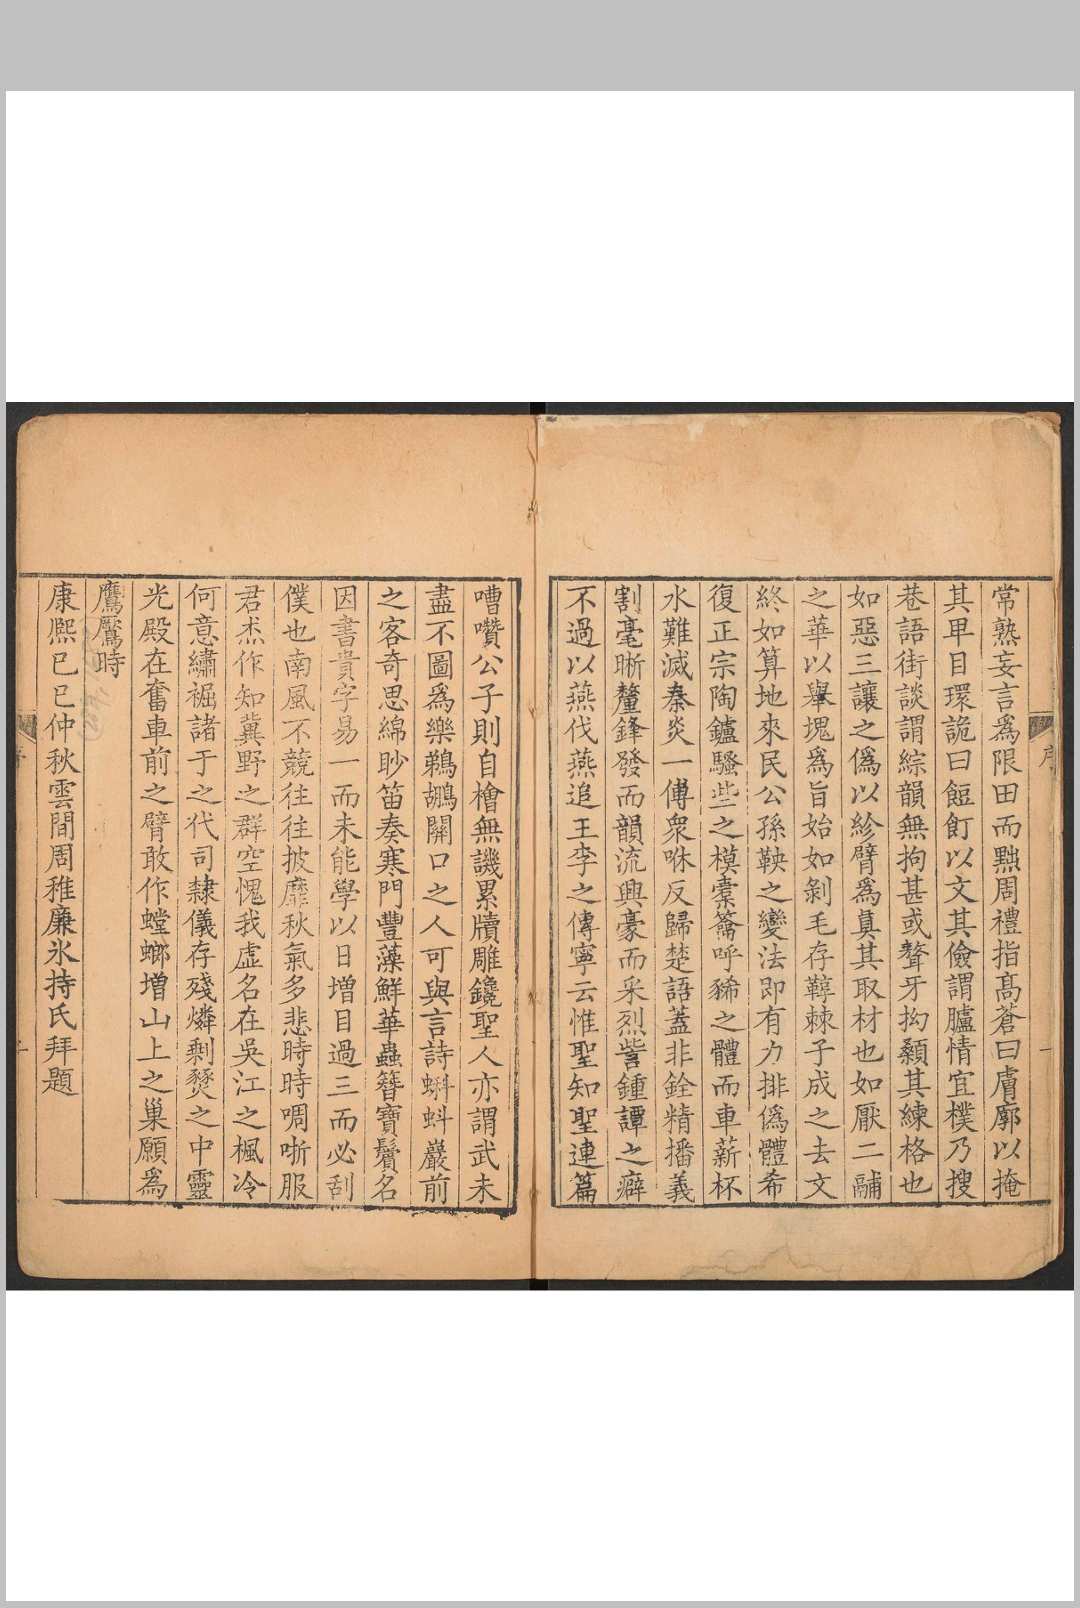 序
常熟妄言爲限田而黜周禮指高蒼曰膚廓以掩
其甲目環詭曰飽飣以文其儉謂臚情宜樸乃搜
巷語街談謂綜韻無拘甚或聱牙拗顙其練格也
如惡三讓之僞以紾臂爲眞其取材也如厭二鬴
之華以舉塊爲旨始如剝毛存鞟棘子成之去文
終如算地來民公孫鞅之變法即有力排僞體希
復正宗陶鑪騷些之模橐籥呼豨之體而車薪杯
水難滅秦炎一傅衆咻反歸楚語蓋非銓精播義
割毫晰釐鋒發而韻流興豪而采烈訾鍾譚之癖
不過以燕伐燕追王李之傳寧云惟聖知聖連篇
嘈囋公子則自檜無譏累牘雕鑱聖人亦謂武未
盡不圖爲樂鵜鶘關口之人可與言詩蝌蚪巖前
之客奇思綿眇笛奏寒門豐藻鮮華蟲簪寶鬢名
因書貴字易一而未能學以日增目過三而必刮
僕也南風不競往往披靡秋氣多悲時時啁哳服
君杰作知冀野之群空愧我虛名在吳江之楓冷
何意繡裾諸于之代司隸儀存殘燐剩燹之中靈
光殿在奮車前之臂敢作螳螂增山上之巢願爲
鷹鸎時
康熙己巳仲秋雲間周稚廉氷持氏拜題